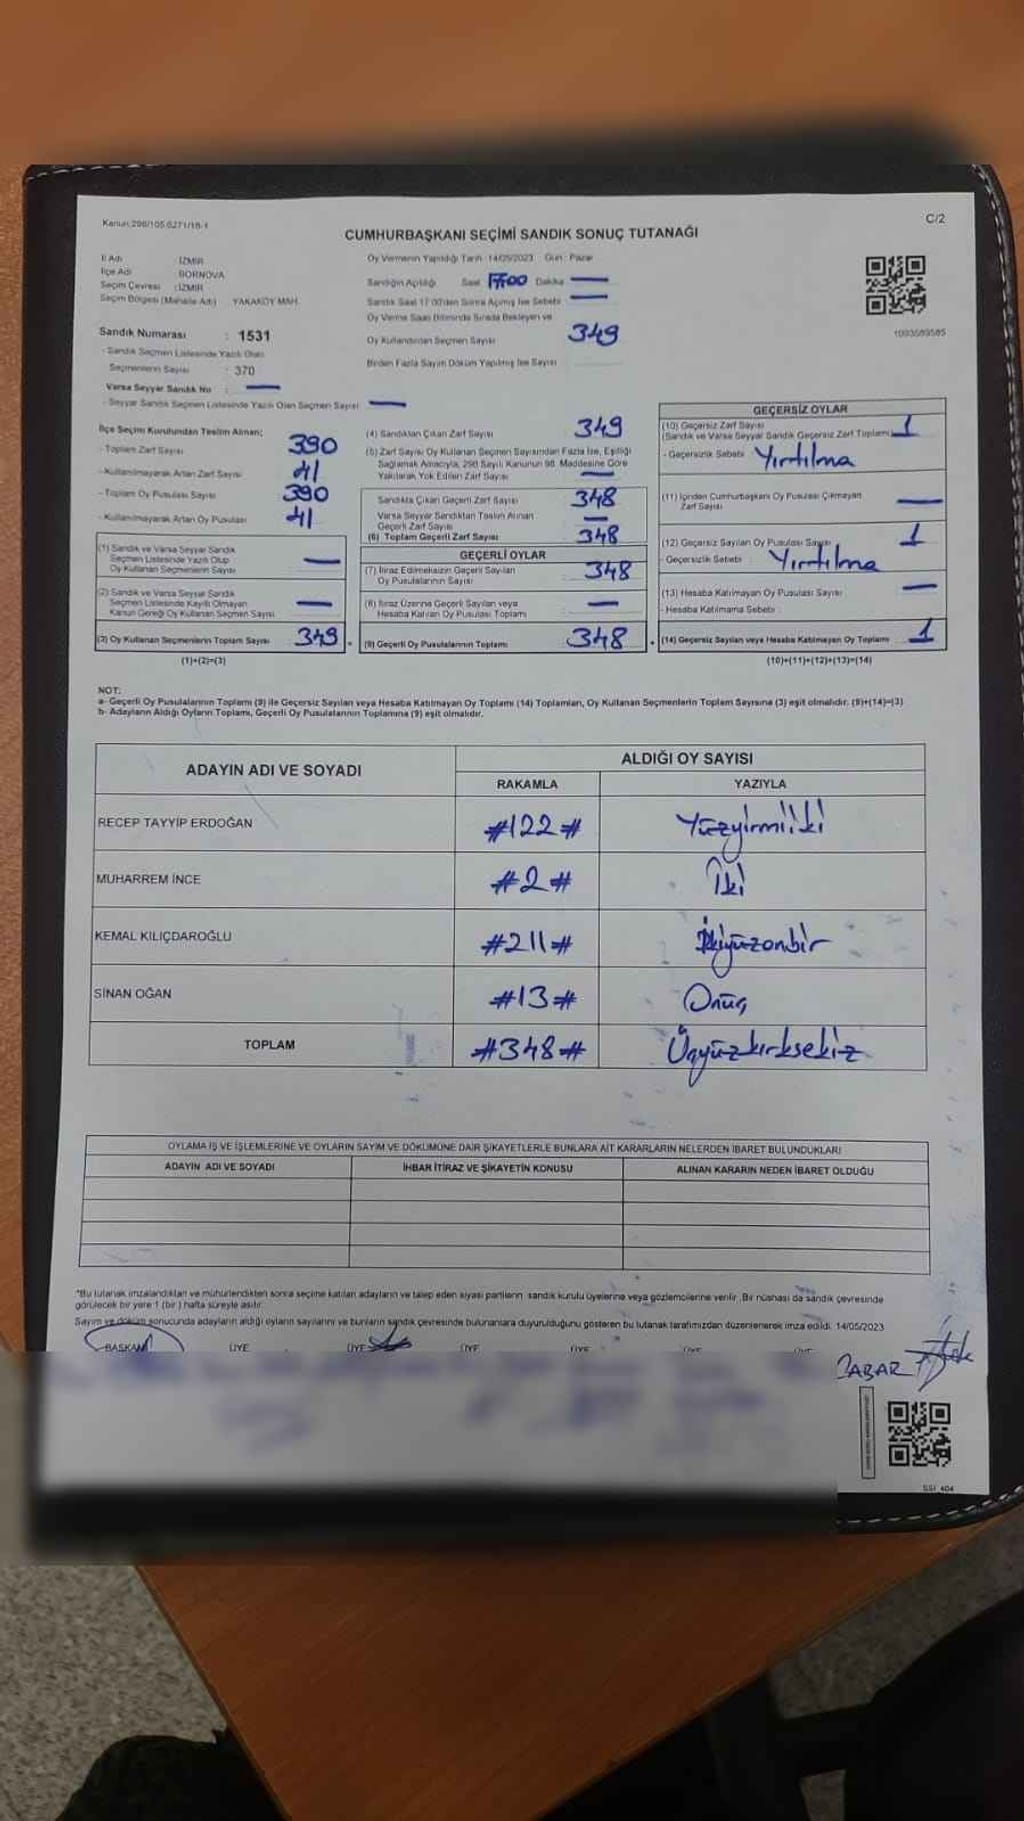 Kanun:298/105,6271/18-1
C/2
CUMHURBAŞKANI SEÇİMİ SANDIK SONUÇ TUTANAĞI
İl Adı : İZMİR
İlçe Adı : BORNOVA
Seçim Çevresi : İZMİR
Seçim Bölgesi (Mahalle Adı) YAKAKÖY MAH.
Sandık Numarası : 1531
- Sandık Seçmen Listesinde Yazılı Olan
Seçmenlerin Sayısı : 370
Varsa Seyyar Sandık No :
- Seyyar Sandık Seçmen Listesinde Yazılı Olan Seçmen Sayısı
Oy Vermenin Yapıldığı Tarih :14/05/2023 Gün : Pazar
Sandığın Açıldığı Saat 17:00 Dakika
Sandık Saat 17:00'den Sonra Açılmış İse Sebebi
Oy Verme Saati Bitiminde Sırada Bekleyen ve
Oy Kullandırılan Seçmen Sayısı 349
Birden Fazla Sayım Döküm Yapılmış İse Sayısı
1093589585
İlçe Seçim Kurulundan Teslim Alınan;
- Toplam Zarf Sayısı 390
- Kullanılmayarak Artan Zarf Sayısı 41
- Toplam Oy Pusulası Sayısı 390
- Kullanılmayarak Artan Oy Pusulası 41
(1) Sandık ve Varsa Seyyar Sandık
Seçmen Listesinde Yazılı Olup
Oy Kullanan Seçmenlerin Sayısı
(2) Sandık ve Varsa Seyyar Sandık
Seçmen Listesinde Kayıtlı Olmayan
Kanun Gereği Oy Kullanan Seçmen Sayısı
(3) Oy Kullanan Seçmenlerin Toplam Sayısı 349
(1)+(2)=(3)
(4) Sandıktan Çıkan Zarf Sayısı 349
(5) Zarf Sayısı Oy Kullanan Seçmen Sayısından Fazla İse, Eşitliği
Sağlamak Amacıyla, 298 Sayılı Kanunun 98. Maddesine Göre
Yakılarak Yok Edilen Zarf Sayısı
Sandıkta Çıkan Geçerli Zarf Sayısı 348
Varsa Seyyar Sandıktan Teslim Alınan
Geçerli Zarf Sayısı
(6) Toplam Geçerli Zarf Sayısı 348
GEÇERLİ OYLAR
(7) İtiraz Edilmeksizin Geçerli Sayılan
Oy Pusulalarının Sayısı 348
(8) İtiraz Üzerine Geçerli Sayılan veya
Hesaba Katılan Oy Pusulası Toplamı
(9) Geçerli Oy Pusulalarının Toplamı 348
GEÇERSİZ OYLAR
(10) Geçersiz Zarf Sayısı
(Sandık ve Varsa Seyyar Sandık Geçersiz Zarf Toplamı) 1
- Geçersizlik Sebebi Yırtılma
(11) İçinden Cumhurbaşkanı Oy Pusulası Çıkmayan
Zarf Sayısı
(12) Geçersiz Sayılan Oy Pusulası Sayısı 1
- Geçersizlik Sebebi Yırtılma
(13) Hesaba Katılmayan Oy Pusulası Sayısı
- Hesaba Katılmama Sebebi
(14) Geçersiz Sayılan veya Hesaba Katılmayan Oy Toplamı 1
(10)+(11)+(12)+(13)=(14)
NOT:
a- Geçerli Oy Pusulalarının Toplamı (9) ile Geçersiz Sayılan veya Hesaba Katılmayan Oy Toplamı (14) Toplamları, Oy Kullanan Seçmenlerin Toplam Sayısına (3) eşit olmalıdır. (9)+(14)=(3)
b- Adayların Aldığı Oyların Toplamı, Geçerli Oy Pusulalarının Toplamına (9) eşit olmalıdır.
ADAYIN ADI VE SOYADI
ALDIĞI OY SAYISI
RAKAMLA YAZIYLA
RECEP TAYYİP ERDOĞAN #122# Yüzyirmiiki
MUHARREM İNCE #2# İki
KEMAL KILIÇDAROĞLU #211# İkiyüzonbir
SİNAN OĞAN #13# Onüç
TOPLAM #348# Üçyüzkırksekiz
OYLAMA İŞ VE İŞLEMLERİNE VE OYLARIN SAYIM VE DÖKÜMÜNE DAİR ŞİKAYETLERLE BUNLARA AİT KARARLARIN NELERDEN İBARET BULUNDUKLARI
ADAYIN ADI VE SOYADI İHBAR İTİRAZ VE ŞİKAYETİN KONUSU ALINAN KARARIN NEDEN İBARET OLDUĞU
*Bu tutanak imzalandıktan ve mühürlendikten sonra seçime katılan adayların ve talep eden siyasi partilerin sandık kurulu üyelerine veya gözlemcilerine verilir. Bir nüshası da sandık çevresinde
görülecek bir yere 1 (bir) hafta süreyle asılır.
Sayım ve döküm sonucunda adayların aldığı oyların sayılarını ve bunların sandık çevresinde bulunanlara duyurulduğunu gösteren bu tutanak tarafımızdan düzenlenerek imza edildi. 14/05/2023
BAŞKAN ÜYE ÜYE ÜYE ÜYE ÜYE ÜYE